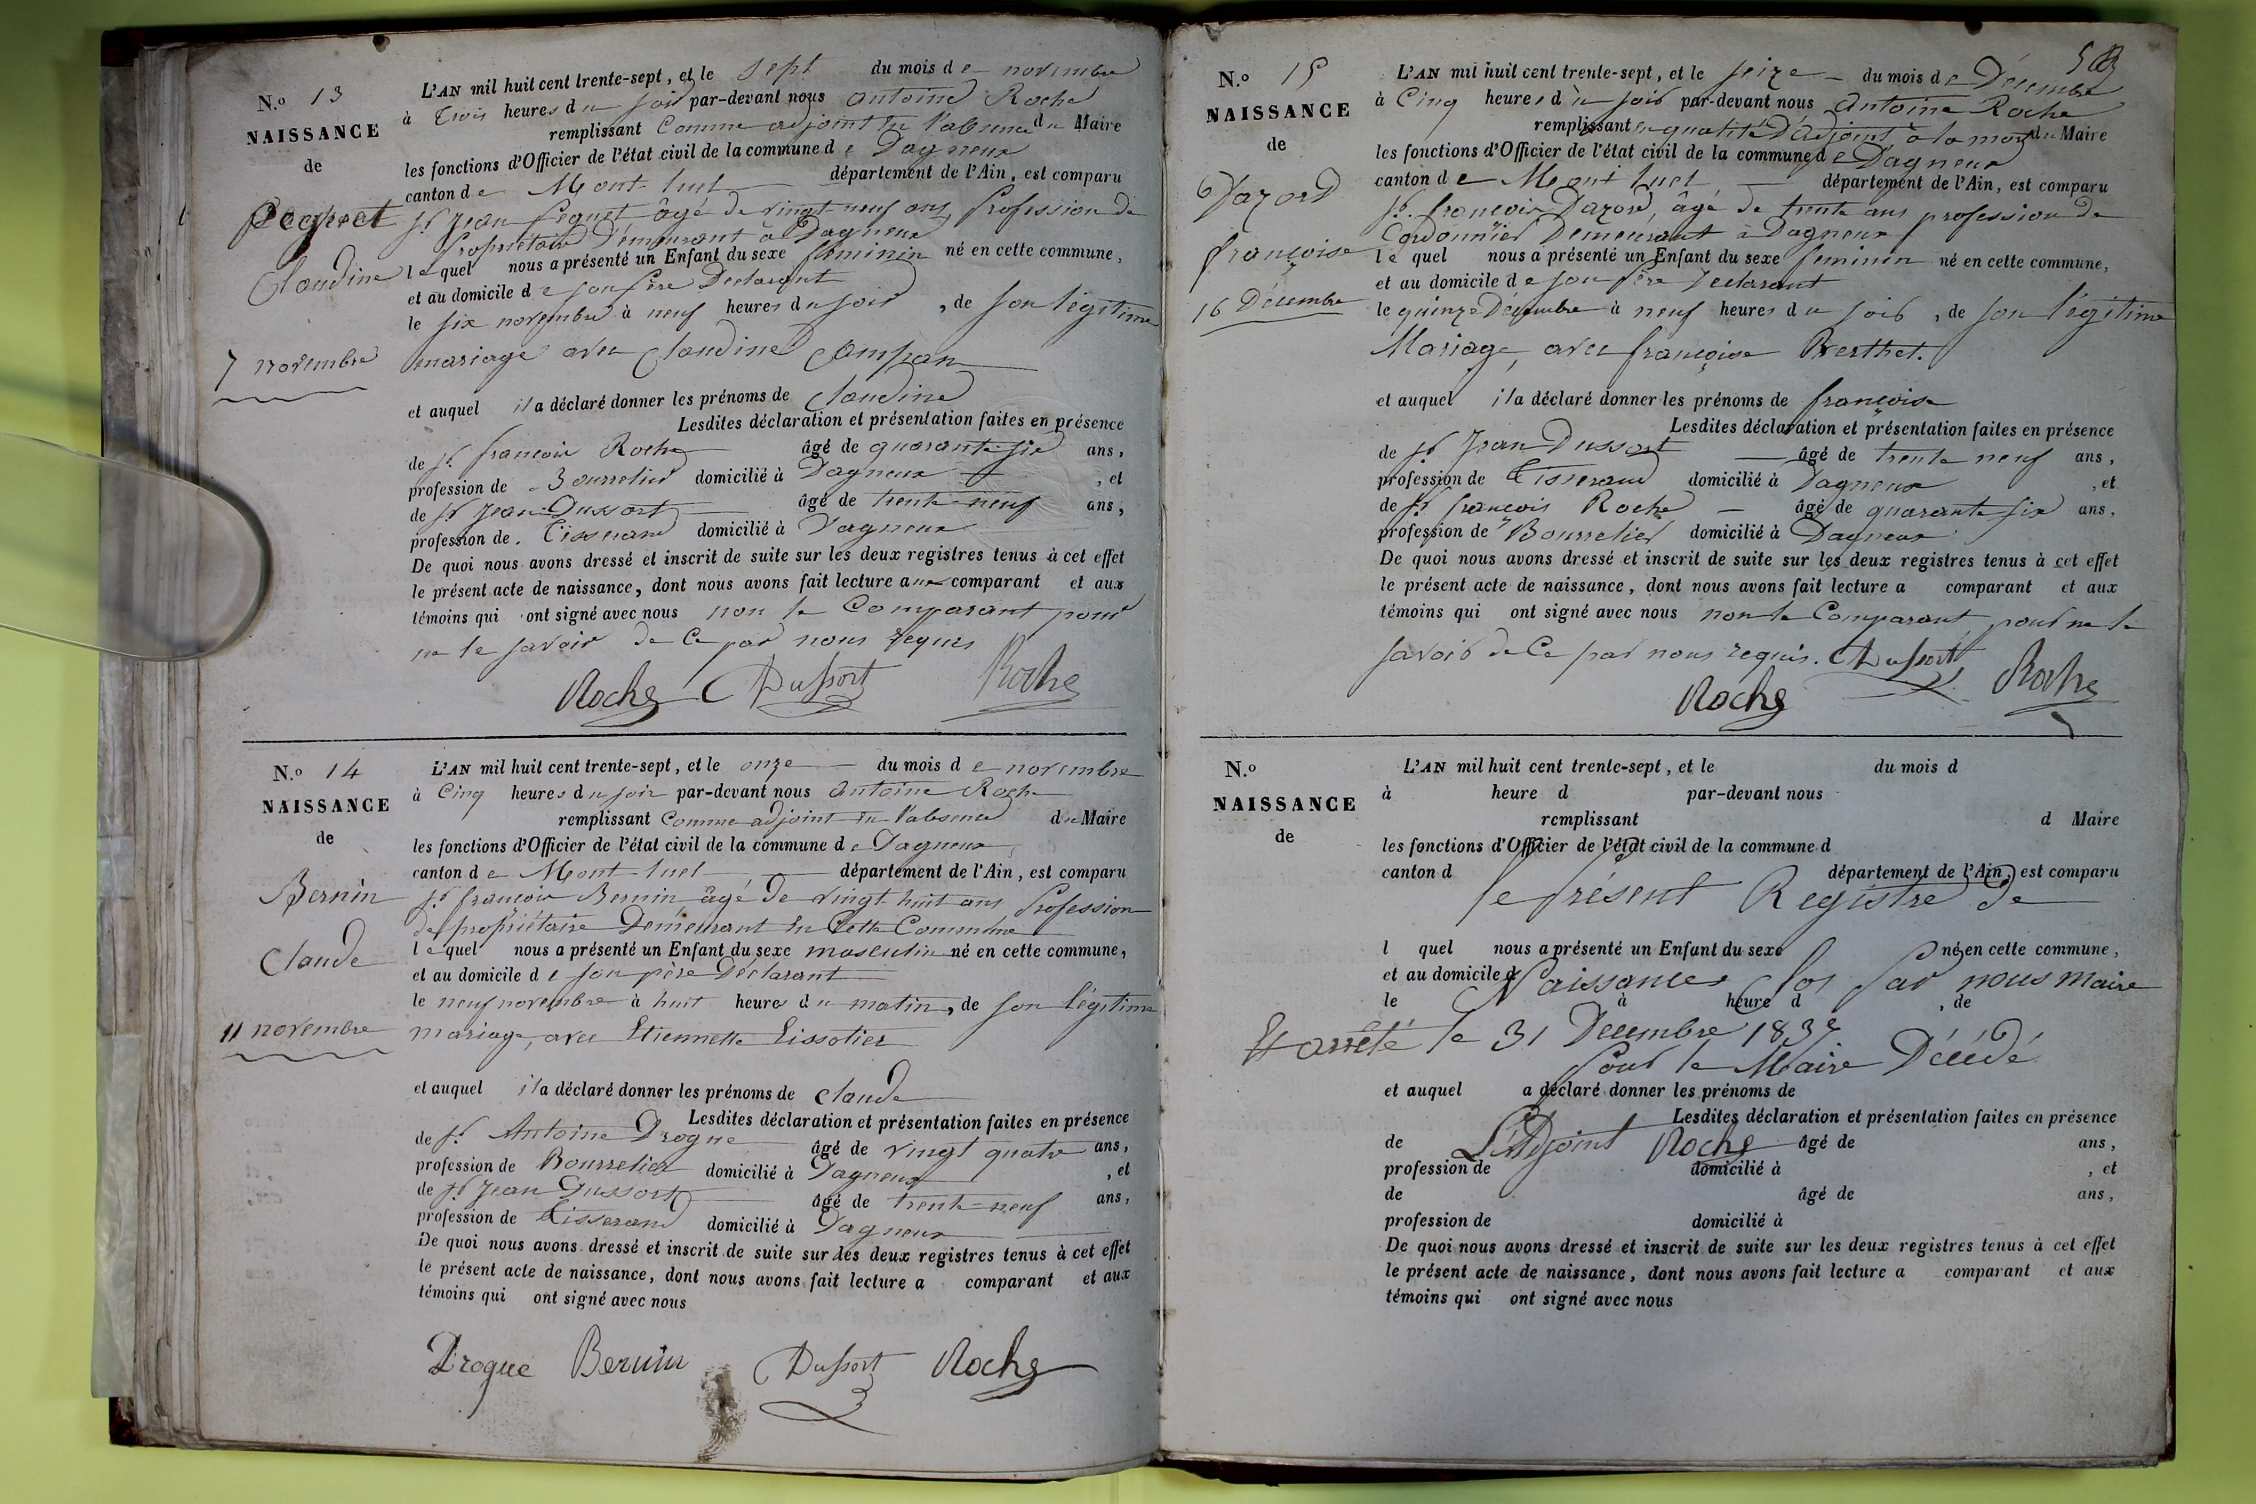 N.o 13
NAISSANCE
de
Pegnet
Claudine
7 novembre
L'AN mil huit cent trente-sept, et le sept du mois de novembre
à trois heures du soir par-devant nous Antoine Roche
remplissant comme adjoint en l'absence du Maire
les fonctions d'Officier de l'état civil de la commune de Dagneux
canton de Mont-luel département de l'Ain, est comparu
sr. Jean Peguet âgé de vingt-neuf ans, profession de
propriétaire Demeurant à Dagneux
lequel nous a présenté un Enfant du sexe féminin né en cette commune,
et au domicile de son père Declarant
le six novembre à neuf heures du soir, de son légitime
mariage avec Claudine
et auquel il a déclaré donner les prénoms de Claudine
Lesdites déclaration et présentation faites en présence
de sr. françois Roche âgé de quarante-six ans,
profession de Bourrelier domicilié à Dagneux, et
de sr Jean Dussort âgé de trente-neuf ans,
profession de Tisserand domicilié à Dagneux
De quoi nous avons dressé et inscrit de suite sur les deux registres tenus à cet effet
le présent acte de naissance, dont nous avons fait lecture aux comparant et aux
témoins qui ont signé avec nous non le Comparant pour
ne le savoir de Ce par nous requis
Roche Dussort Roche
N.o 14
NAISSANCE
de
Bernin
Claude
11 novembre
L'AN mil huit cent trente-sept, et le onze du mois de novembre
à Cinq heures du soir par-devant nous Antoine Roche
remplissant Comme adjoint en l'absence du Maire
les fonctions d'Officier de l'état civil de la commune de Dagneux
canton de Mont-luel département de l'Ain, est comparu
sr. françois Bernin âgé de vingt huit ans profession
de propriétaire Demeurant en Cette Commune
lequel nous a présenté un Enfant du sexe masculin né en cette commune,
et au domicile de son père Déclarant
le neuf novembre à huit heures du matin, de son légitime
mariage, avec Etiennette Lissotier
et auquel il a déclaré donner les prénoms de Claude
Lesdites déclaration et présentation faites en présence
de sr. Antoine Drogue âgé de vingt quatre ans,
profession de Bourrelier domicilié à Dagneux, et
de sr Jean Dussort âgé de trente-neuf ans,
profession de Tisserand domicilié à Dagneux
De quoi nous avons dressé et inscrit de suite sur les deux registres tenus à cet effet
le présent acte de naissance, dont nous avons fait lecture a comparant et aux
témoins qui ont signé avec nous
Drogue Bernin Dussort Roche
N.o 15
NAISSANCE
de
Dazord
françoise
16 Décembre
L'AN mil huit cent trente-sept, et le seize du mois de Décembre
à Cinq heures du soir par-devant nous Antoine Roche
remplissant en qualité D'adjoint à la mort du Maire
les fonctions d'Officier de l'état civil de la commune de Dagneux
canton de Mont-luel département de l'Ain, est comparu
sr. françois Dazord, âgé de trente ans profession de
Cordonnier Demeurant à Dagneux
lequel nous a présenté un Enfant du sexe feminin né en cette commune,
et au domicile de son père Declarant
le quinze Décembre à neuf heures du soir, de son légitime
Mariage, avec françoise Berthet.
et auquel il a déclaré donner les prénoms de françoise
Lesdites déclaration et présentation faites en présence
de sr Jean Dussort âgé de trente neuf ans,
profession de Tisserand domicilié à Dagneux, et
de sr françois Roche âgé de quarante six ans,
profession de Bourrelier domicilié à Dagneux
De quoi nous avons dressé et inscrit de suite sur les deux registres tenus à cet effet
le présent acte de naissance, dont nous avons fait lecture a comparant et aux
témoins qui ont signé avec nous non le Comparant pour ne le
savoir de Ce par nous requis. Dussort Roche
Roche
N.o
NAISSANCE
de
L'AN mil huit cent trente-sept, et le du mois d
à heure d par-devant nous
remplissant d Maire
les fonctions d'Officier de l'état civil de la commune d
canton d département de l'Ain, est comparu
le présent Registre de
l quel nous a présenté un Enfant du sexe né en cette commune,
et au domicile d
Naissances Clos par nous maire
le à heure d, de
Et arrêté le 31 Decembre 1837
pour le Maire Décédé
et auquel a déclaré donner les prénoms de
Lesdites déclaration et présentation faites en présence
L'Adjoint Roche
de âgé de ans,
profession de domicilié à, et
de âgé de ans,
profession de domicilié à
De quoi nous avons dressé et inscrit de suite sur les deux registres tenus à cet effet
le présent acte de naissance, dont nous avons fait lecture a comparant et aux
témoins qui ont signé avec nous